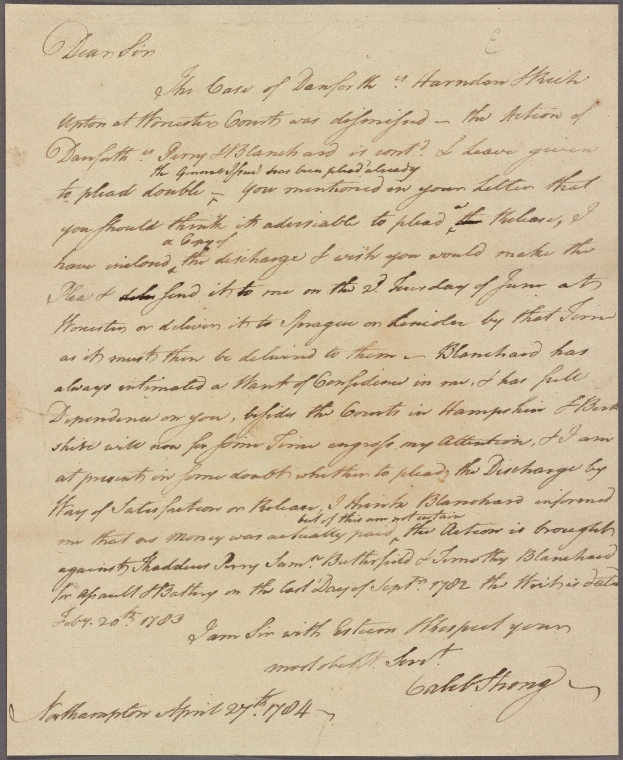 Dear Sir
The Case of Danforth vs Harnden & Rich
Upton at Worcester Court was dismissed — the Action of
Danforth vs Perry & Blanchard is contd. & leave given
the General Issue has been plead already
to plead double — you mentioned in your Letter that
you should think it adviseable to plead a the Release, I
a Copy of
have inclosed the discharge & wish you would make the
Plea & send it to me on the 2d Tuesday of June at
Worcester or deliver it to Sprague or Lincoln by that Time
as it must then be delivered to them — Blanchard has
always intimated a Want of Confidence in me, & has full
Dependence on you, beside the Courts in Hampshire & Berk
shire will now for some Time engross my Attention, & I am
at present in some doubt whether to plead the Discharge by
Way of Satisfaction or Release, I think Blanchard informed
but of this am not certain
me that no money was actually paid, the Action is brought
against Thaddeus Perry Saml. Butterfield & Timothy Blanchard
for Assault & Battery on the last Day of Septr. 1782 the Writ is dated
Feby. 20th. 1783
I am Sir with Esteem & Respect your
most obedt. Servt.
Caleb Strong
Northampton April 27th. 1784